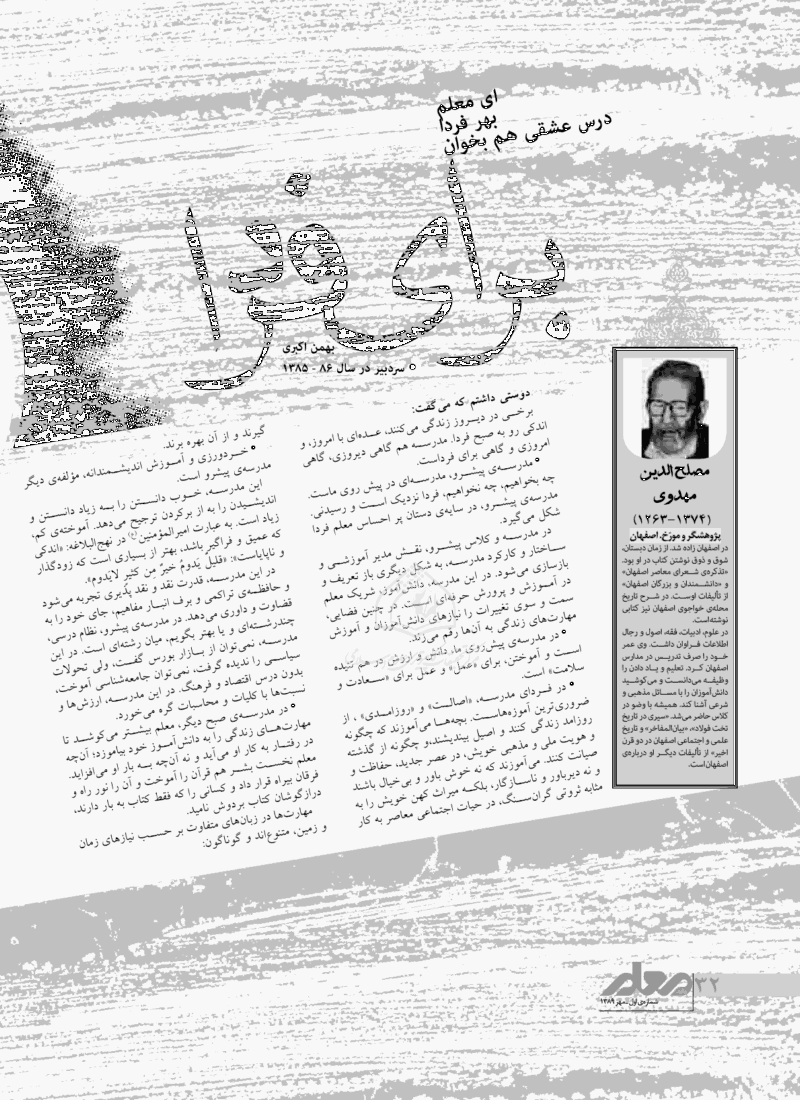 ای معلم
بهر فردا
درس عشقی هم بخوان
برای فردا
بهمن اکبری
سردبیر در سال ۸۶ - ۱۳۸۵
دوستی داشتم که می‌گفت:
برخی در دیروز زندگی می‌کنند، عده‌ای با امروز، و
اندکی رو به صبح فردا. مدرسه هم گاهی دیروزی، گاهی
امروزی و گاهی برای فرداست.
• مدرسه‌ی پیشرو، مدرسه‌ای در پیش روی ماست.
چه بخواهیم، چه نخواهیم، فردا نزدیک است و رسیدنی.
مدرسه‌ی پیشرو، در سایه‌ی دستان پر احساس معلم فردا
شکل می‌گیرد.
در مدرسه و کلاس پیشرو، نقش مدیر آموزشی و
ساختار و کارکرد مدرسه، به شکل دیگری باز تعریف و
بازسازی می‌شود. در این مدرسه، دانش‌آموز، شریک معلم
در آموزش و پرورش حرفه‌ای است. در چنین فضایی،
سمت و سوی تغییرات را نیازهای دانش‌آموزان و آموزش
مهارت‌های زندگی به آن‌ها رقم می‌زند.
• در مدرسه‌ی پیش‌روی ما، دانش و ارزش در هم تنیده
است و آموختن، برای «عمل» و عمل برای «سعادت و
سلامت» است.
• در فردای مدرسه، «اصالت» و «روزآمدی» ، از
ضروری‌ترین آموزه‌هاست. بچه‌ها می‌آموزند که چگونه
روزآمد زندگی کنند و اصیل بیندیشند،و چگونه از گذشته
و هویت ملی و مذهبی خویش، در عصر جدید، حفاظت و
صیانت کنند. می‌آموزند که نه خوش باور و بی‌خیال باشند
و نه دیرباور و ناسازگار، بلکه میراث کهن خویش را به
مثابه ثروتی گران‌سنگ، در حیات اجتماعی معاصر به کار
گیرند و از آن بهره برند.
• خردورزی و آموزش اندیشمندانه، مؤلفه‌ی دیگر
مدرسه‌ی پیشرو است.
این مدرسه، خوب دانستن را به زیاد دانستن و
اندیشیدن را به از برکردن ترجیح می‌دهد. آموخته‌ی کم،
زیاد است. به عبارت امیرالمؤمنین(ع) در نهج‌البلاغه: «اندکی
که عمیق و فراگیر باشد، بهتر از بسیاری است که زودگذار
و ناپایاست»: «قلیلٌ یَدومُ خیرٌ مِن کثیرٍ لایدوم».
در این مدرسه، قدرت نقد و نقد پذیری تجربه می‌شود
و حافظه‌ی تراکمی و برف انبار مفاهیم، جای خود را به
قضاوت و داوری می‌دهد. در مدرسه‌ی پیشرو، نظام درسی،
چندرشته‌ای و یا بهتر بگویم، میان رشته‌ای است. در این
مدرسه، نمی‌توان از بازار بورس گفت، ولی تحولات
سیاسی را ندیده گرفت، نمی‌توان جامعه‌شناسی آموخت،
بدون درس اقتصاد و فرهنگ. در این مدرسه، ارزش‌ها و
نسبت‌ها با کلیات و محاسبات گره می‌خورد.
• در مدرسه‌ی صبح دیگر، معلم بیشتر می‌کوشد تا
مهارت‌های زندگی را به دانش‌آموز خود بیاموزد؛ آن‌چه
در رفتار به کار او می‌آید و نه آن‌چه به بار او می‌افزاید.
معلم نخست بشر هم قرآن را آموخت و آن را نور راه و
فرقان بیراه قرار داد و کسانی را که فقط کتاب به بار دارند،
درازگوشان کتاب بردوش نامید.
مهارت‌ها در زبان‌های متفاوت بر حسب نیازهای زمان
و زمین، متنوع‌اند و گوناگون:
مصلح‌الدین
مهدوی
(۱۳۷۴-۱۲۶۳)
پژوهشگر و مورّخ. اصفهان
در اصفهان زاده شد. از زمان دبستان،
شوق و ذوق نوشتن کتاب در او بود.
«تذکره‌ی شعرای معاصر اصفهان»
و «دانشمندان و بزرگان اصفهان»
از تألیفات اوست. در شرح تاریخ
محله‌ی خواجوی اصفهان نیز کتابی
نوشته است.
در علوم، ادبیات، فقه، اصول و رجال
اطلاعات فراوان داشت. وی عمر
خود را صرف تدریس در مدارس
اصفهان کرد. تعلیم و یاد دادن را
وظیفه می‌دانست و می‌کوشید
دانش‌آموزان را با مسائل مذهبی و
شرعی آشنا کند. همیشه با وضو در
کلاس حاضر می‌شد. «سیری در تاریخ
تخت فولاد»، «بیان‌المفاخر» و تاریخ
علمی و اجتماعی اصفهان در دو قرن
اخیر» از تألیفات دیگر او درباره‌ی
اصفهان است.
معلم
شماره‌ی اول ـ مهر ۱۳۸۹
۳۲